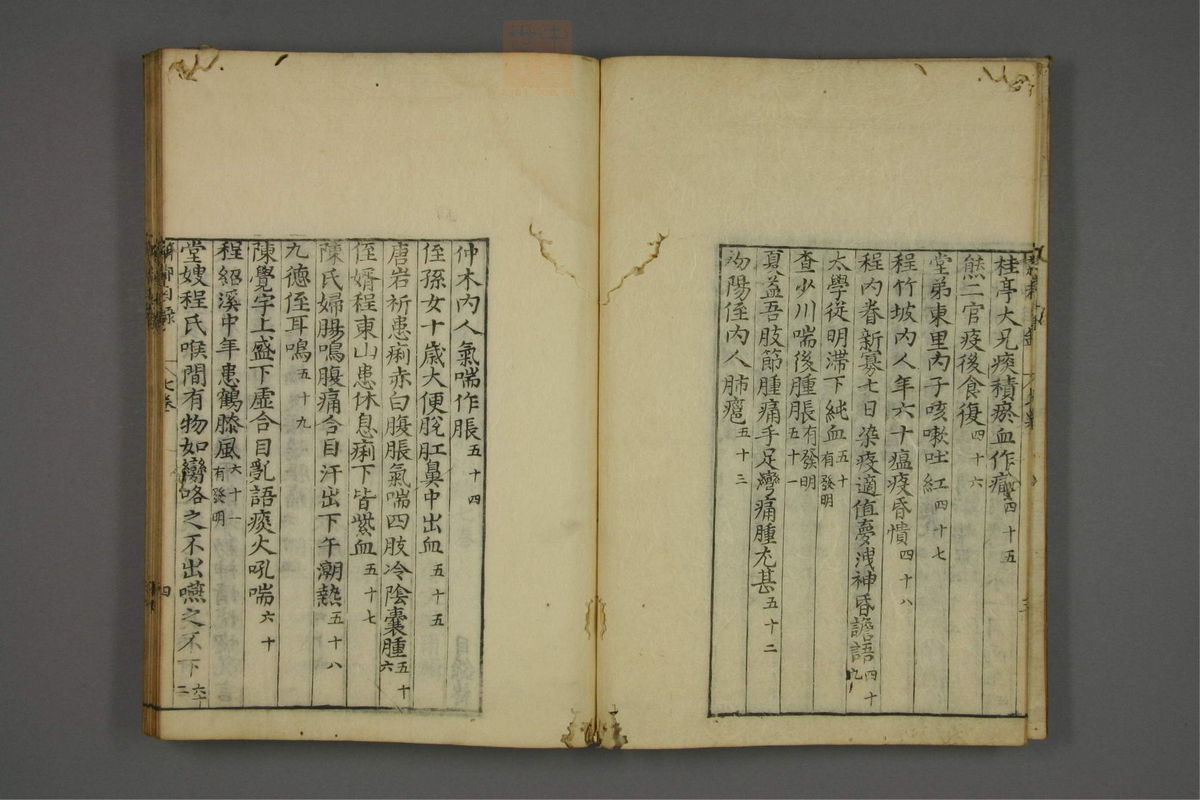 桂亭大兄痰積瘀血作痛四十五
熊二官疫後食復四十六
堂弟東里內子咳嗽吐紅四十七
程竹坡內人年六十瘟疫昏憒四十八
程內眷新寡七日染疫適值夢洩神昏譫語四十九
太學從明滯下純血五十有發明
查少川喘後腫脹有發明五十一
夏益吾肢節腫痛手足彎痛腫尤甚五十二
陽侄內人肺癰五十三
仲木內人氣喘作脹五十四
侄孫女十歲大便脫肛鼻中出血五十五
唐岩祈患痢赤白腹脹氣喘四肢冷陰囊腫五十六
侄婿程東山患休息痢下皆紫血五十七
陳氏婦腸鳴腹痛合目汗出下午潮熱五十八
九德侄耳鳴五十九
陳覺宇上盛下虛合目亂語痰火吼喘六十
程紹溪中年患鶴膝風六十一有發明
堂嫂程氏喉間有物如臠咯之不出嚥之不下六十二
七卷
四